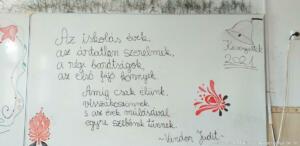 Az iskolás évek,
az ártatlan szerelmek,
a régi barátságok,
az első fájó könnyek.
Amíg csak élünk,
visszaköszönnek
s az évek múlásával
egyre szebbnek tűnnek.
~ Vándor Judit ~
2021